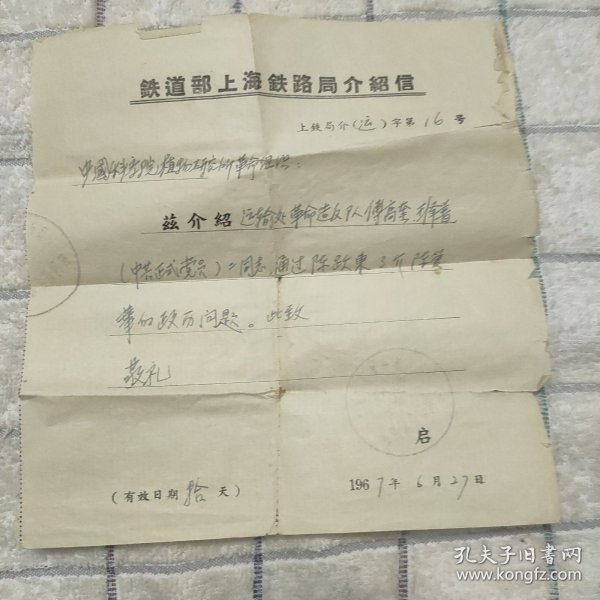 鉄道部上海鉄路局介紹信
上鉄局介(运)字第16号
中國科学院植物研究所革命组织:
兹介紹 运输处革命造反队傅高奎
(中共正式党员)二同志通过陈跃东了介陈
华的政历问题。此致
敬礼
启
(有效日期拾天)
1967年6月27日
孔夫子旧书网
www.kongfz.com